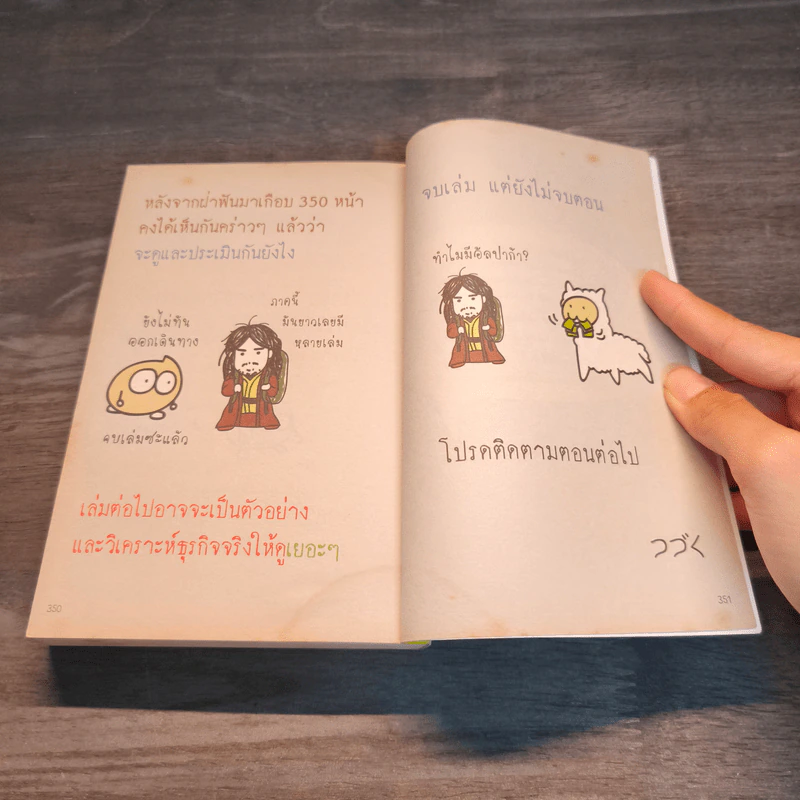 หลังจากฝ่าฟันมาเกือบ 350 หน้า
คงได้เห็นกันคร่าวๆ แล้วว่า
จะดูและประเมินกันยังไง
ภาคนี้
มันยาวเลยมี
หลายเล่ม
ยังไม่ทัน
ออกเดินทาง
จบเล่มซะแล้ว
เล่มต่อไปอาจจะเป็นตัวอย่าง
และวิเคราะห์ธุรกิจจริงให้ดูเยอะๆ
350
จบเล่ม แต่ยังไม่จบตอน
ทำไมมีอัลปาก้า?
โปรดติดตามตอนต่อไป
つづく
351